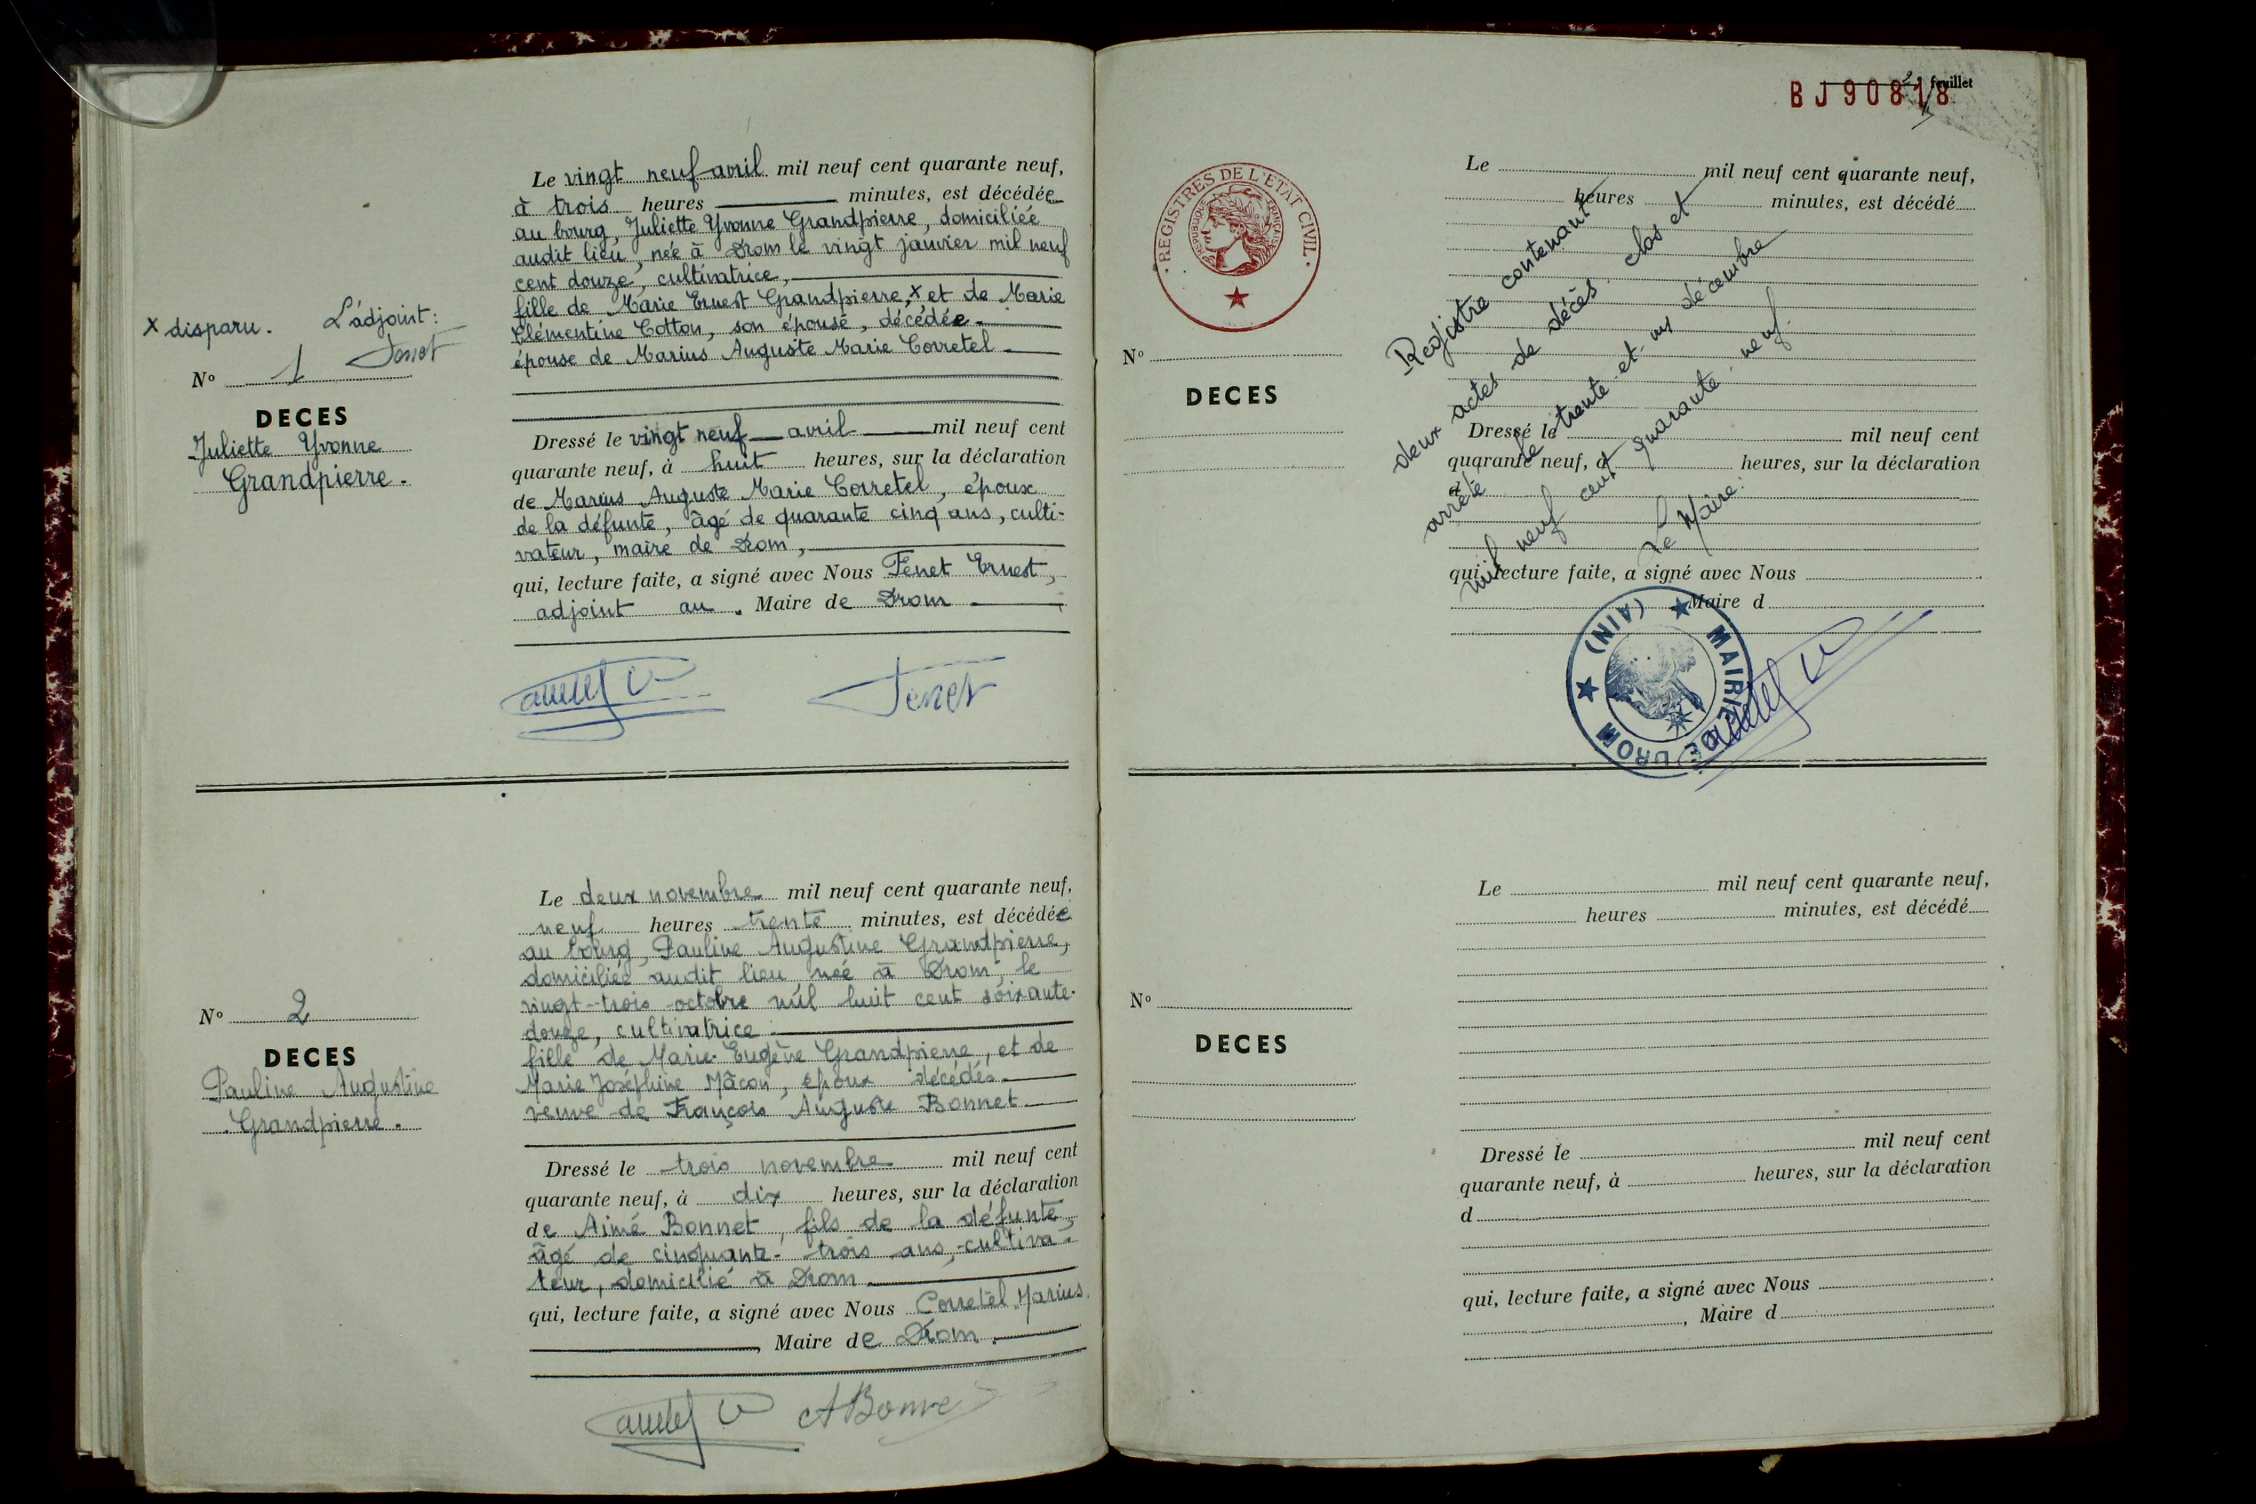 Le vingt neuf avril mil neuf cent quarante neuf,
à trois heures minutes, est décédée
au bourg, Juliette Yvonne Grandpierre, domiciliée
audit lieu, née à Drom le vingt janvier mil neuf
cent douze, cultivatrice,
fille de Marie Ernest Grandpierre, x et de Marie
Clémentine Cotton, son épouse, décédée.
épouse de Marius Auguste Marie Corretel
x disparu. L'adjoint:
Fenet
N° 1
DECES
Juliette Yvonne
Grandpierre.
Dressé le vingt neuf avril mil neuf cent
quarante neuf, à huit heures, sur la déclaration
de Marius Auguste Marie Corretel, époux
de la défunte, âgé de quarante cinq ans, culti-
vateur, maire de Drom,
qui, lecture faite, a signé avec Nous Fenet Ernest,
adjoint au Maire de Drom
Fenet
Le deux novembre mil neuf cent quarante neuf,
neuf heures trente minutes, est décédée
au bourg, Pauline Augustine Grandpierre,
domiciliée audit lieu, née à Drom, le
vingt-trois octobre mil huit cent soixante-
douze, cultivatrice
fille de Marie Eugène Grandpierre, et de
Marie Joséphine Mâcon, époux décédés.
veuve de François Auguste Bonnet
N° 2
DECES
Pauline Augustine
Grandpierre.
Dressé le trois novembre mil neuf cent
quarante neuf, à dix heures, sur la déclaration
de Aimé Bonnet, fils de la défunte,
âgé de cinquante-trois ans, cultiva-
teur, domicilié à Drom
qui, lecture faite, a signé avec Nous Corretel Marius,
Maire de Drom.
A Bonnet
BJ90818
2 feuillet
REGISTRES DE L'ETAT CIVIL
REPUBLIQUE FRANÇAISE
Le mil neuf cent quarante neuf,
heures minutes, est décédé
N°
DECES
Dressé le mil neuf cent
quarante neuf, à heures, sur la déclaration
d
qui, lecture faite, a signé avec Nous
Maire d
Registre contenant
deux actes de décès clos et
arrêté le trente-et-un décembre
mil neuf cent quarante-neuf.
Le Maire:
MAIRIE DE DROM (AIN)
Le mil neuf cent quarante neuf,
heures minutes, est décédé
N°
DECES
Dressé le mil neuf cent
quarante neuf, à heures, sur la déclaration
d
qui, lecture faite, a signé avec Nous
, Maire d